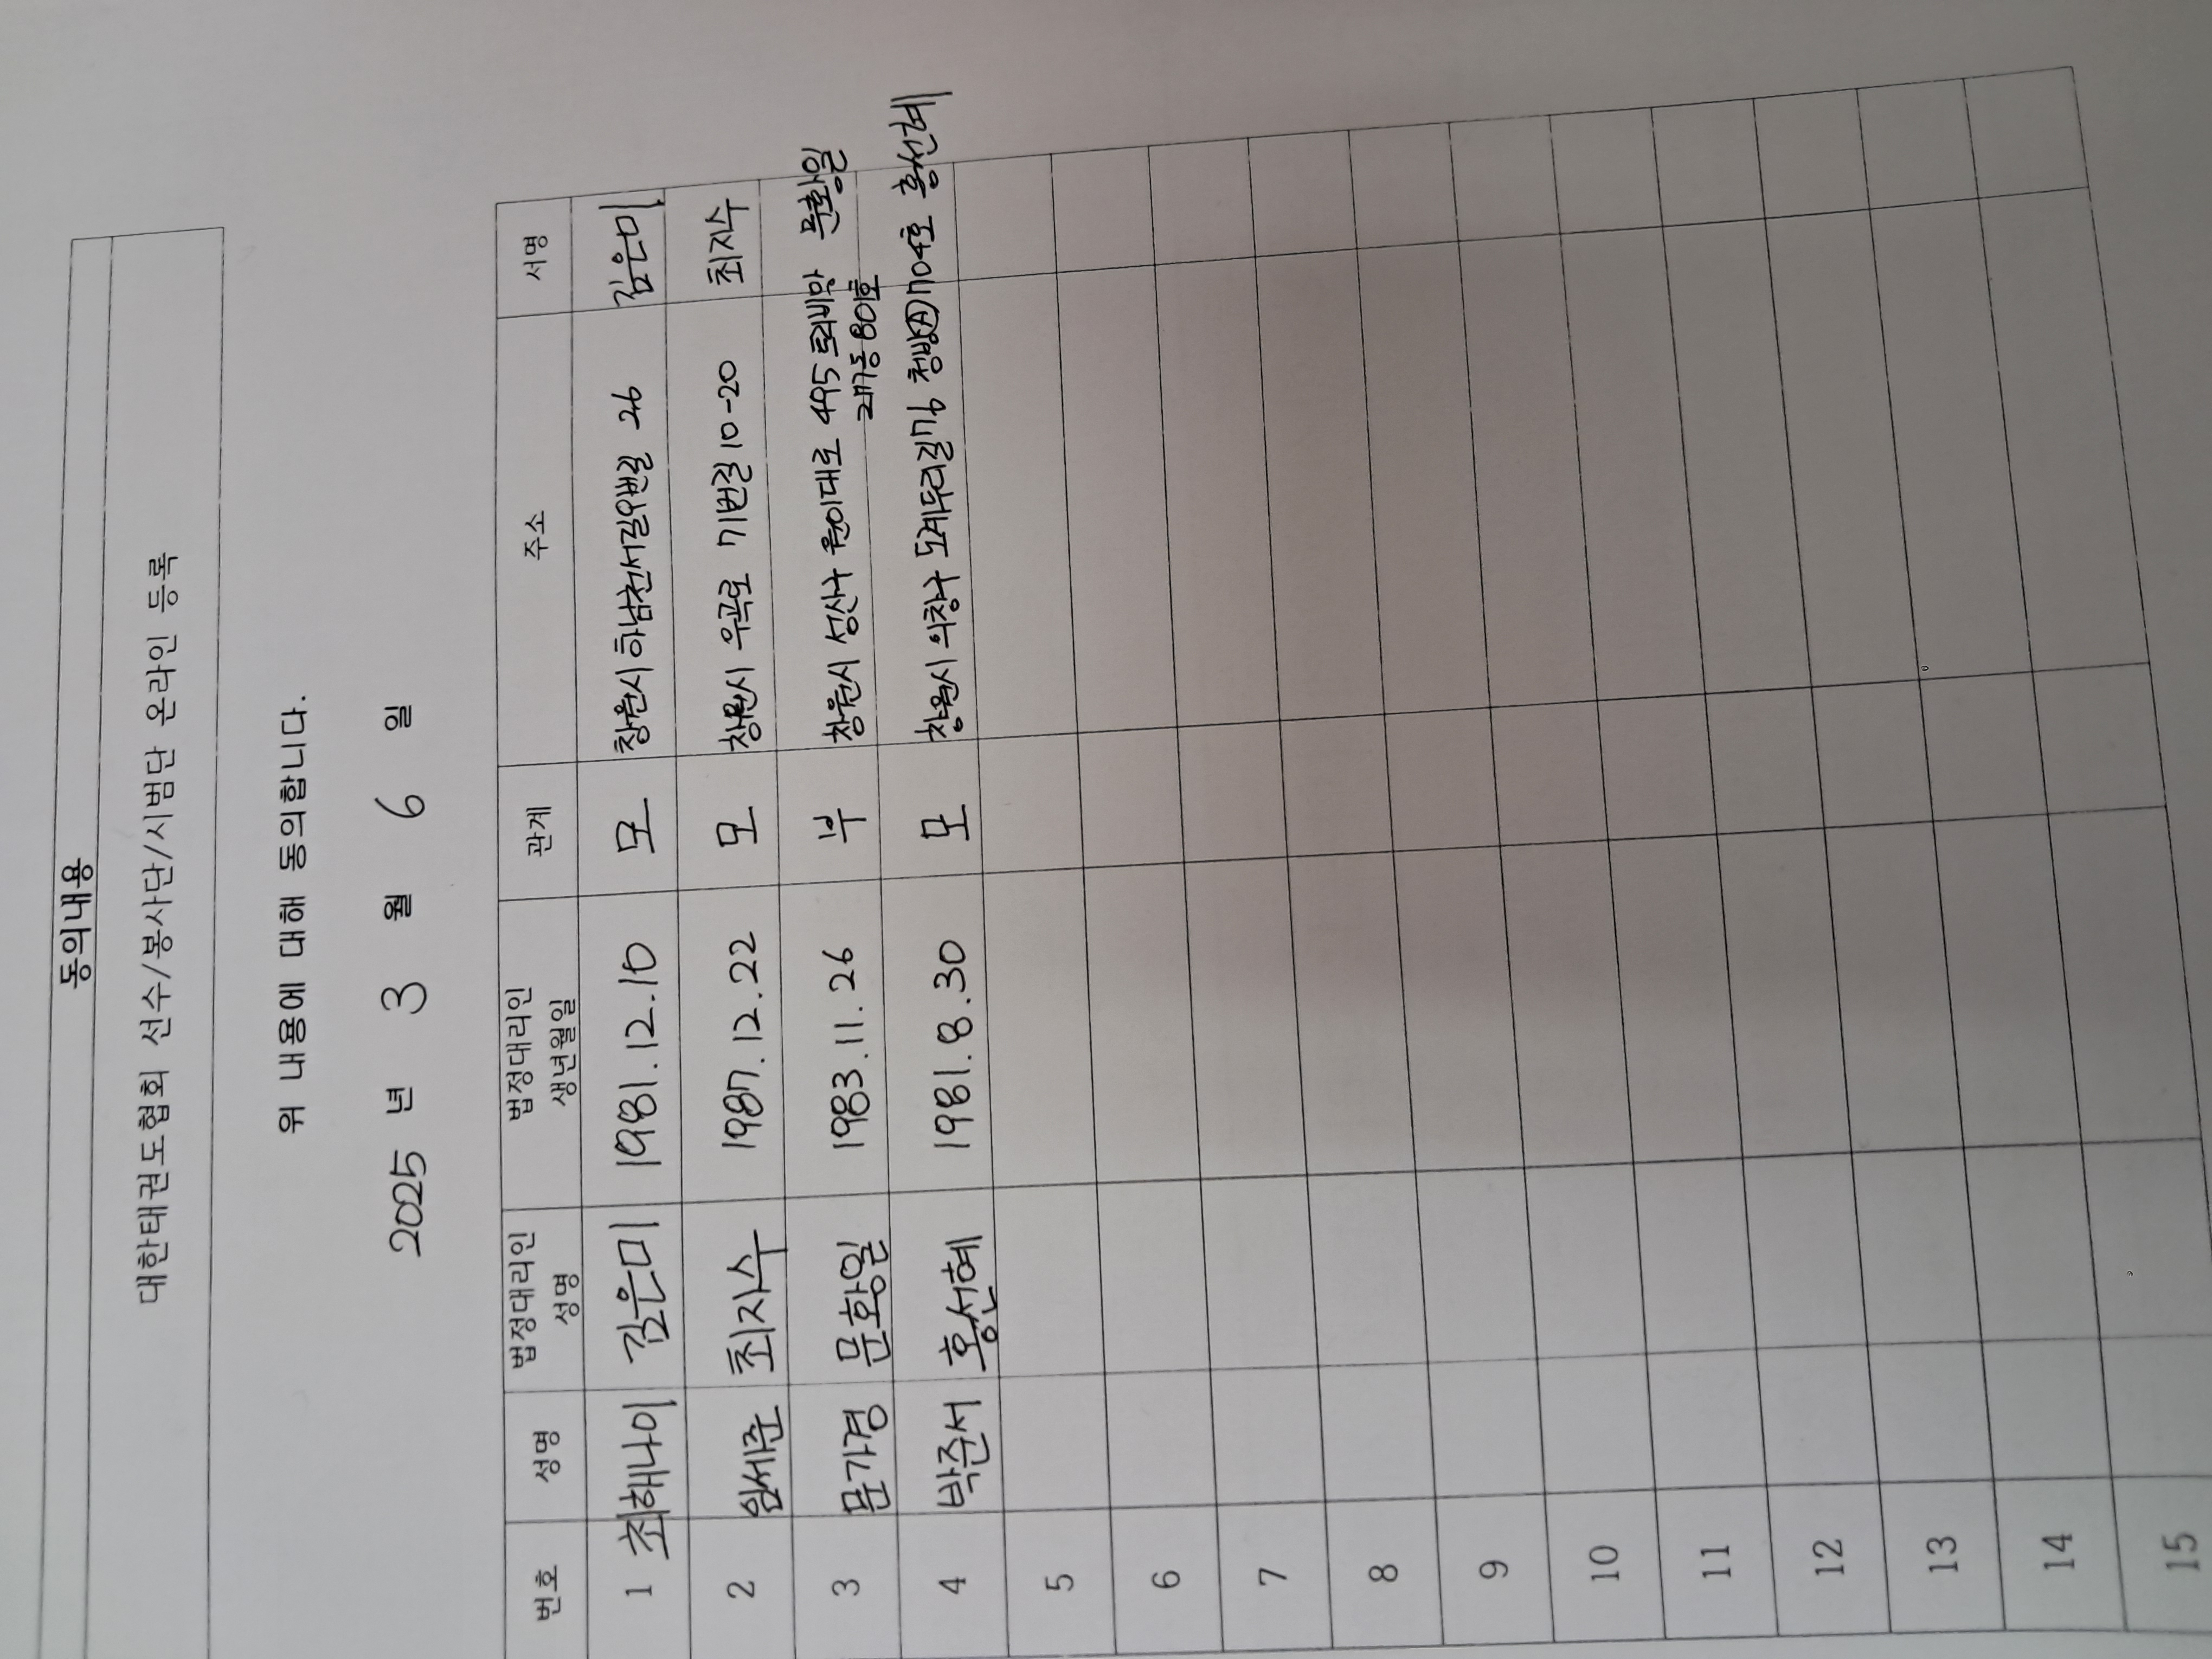 동의내용
대한태권도협회 선수/봉사단/시범단 온라인 등록
위 내용에 대해 동의합니다.
2025 년 3 월 6 일
번호 성명 법정대리인 성명 법정대리인 생년월일 관계 주소 서명
1 최해나이 김은미 1981.12.10 모 창원시 하남천서길 26 김은미
2 임세준 최지수 1987.12.22 모 창원시 우곡로 71번길 10-20 최지수
3 문가경 문황일 1983.11.26 부 창원시 성산구 원이대로 495 트리비앙 문황일
801호
4 박준서 홍선혜 1981.8.30 모 창원시 의창구 도계두리길 704호 홍선혜
5
6
7
8
9
10
11
12
13
14
15